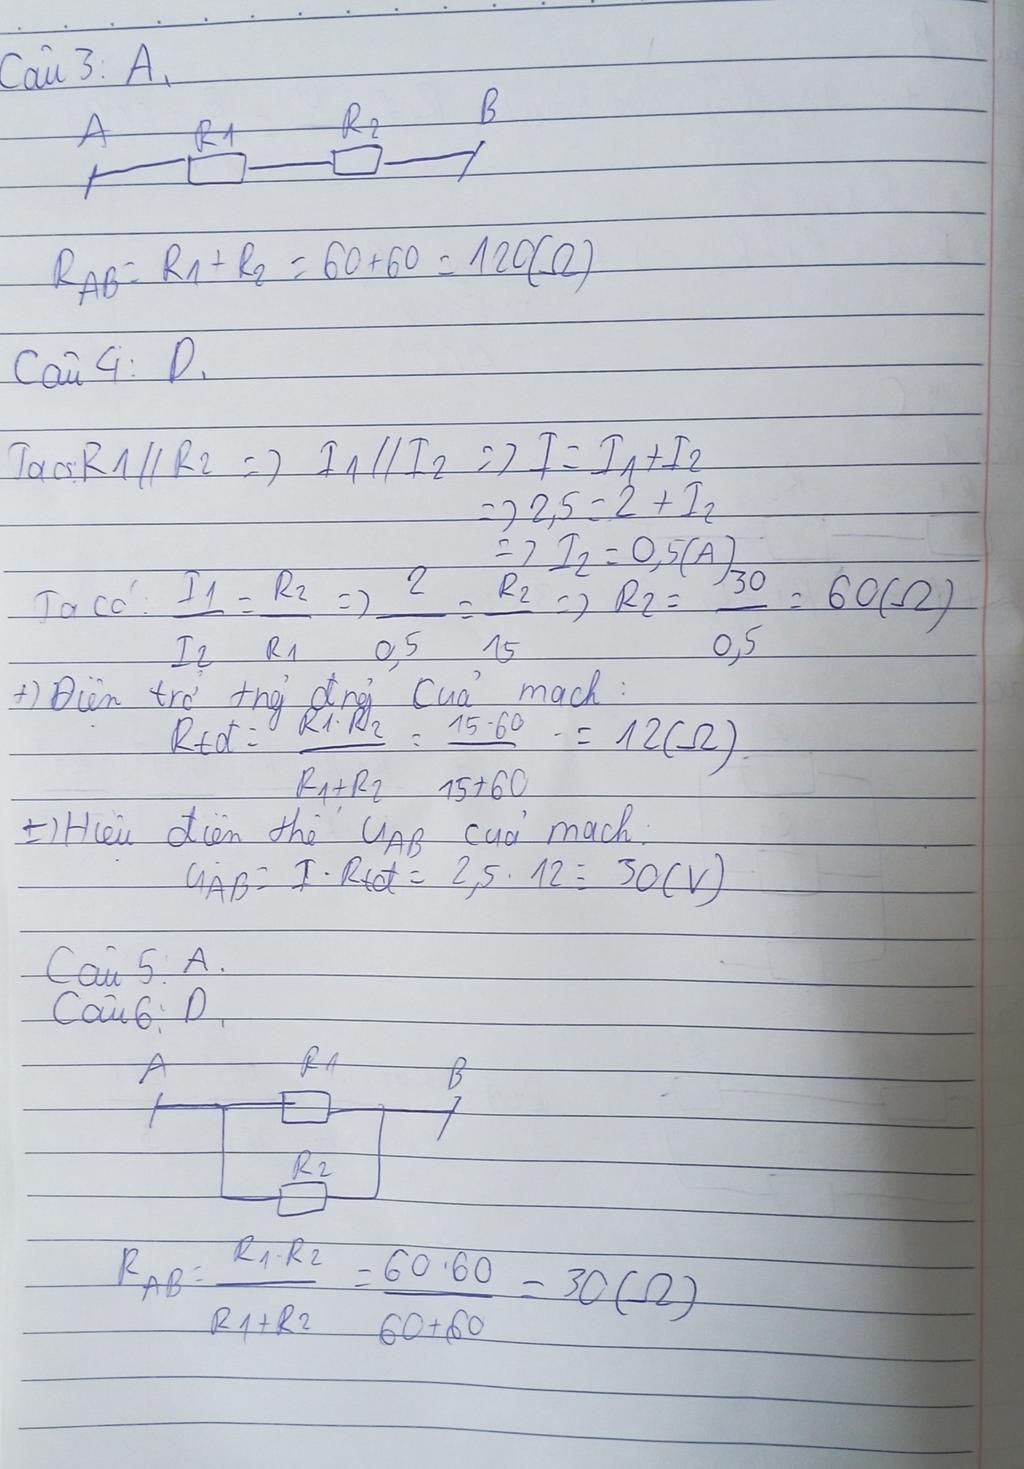 Câu 3: A.
A R1 R2 B
R_AB = R1 + R2 = 60+60 = 120(Ω)
Câu 4: D.
Ta có: R1 // R2 => I1 // I2 => I = I1 + I2
=> 2,5 = 2 + I2
=> I2 = 0,5(A)
Ta có: I1/I2 = R2/R1 => 2/0,5 = R2/15 => R2 = 30/0,5 = 60(Ω)
+) Điện trở tng đng của mạch:
Rtđ = R1.R2/R1+R2 = 15.60/15+60 = 12(Ω).
+) Hiệu điện thế U_AB của mạch:
U_AB = I . Rtđ = 2,5 . 12 = 30(V)
Câu 5: A.
Câu 6: D.
A R1 B
R2
R_AB = R1.R2/R1+R2 = 60.60/60+60 = 30(Ω)